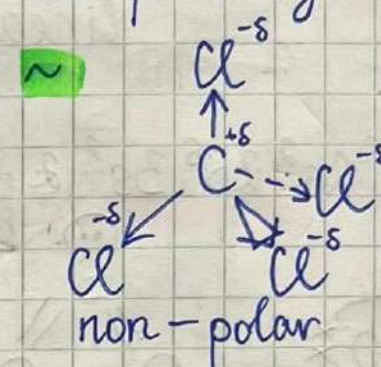 ~
Cl-δ
C+δ
Cl-δ
Cl-δ
Cl-δ
non-polar